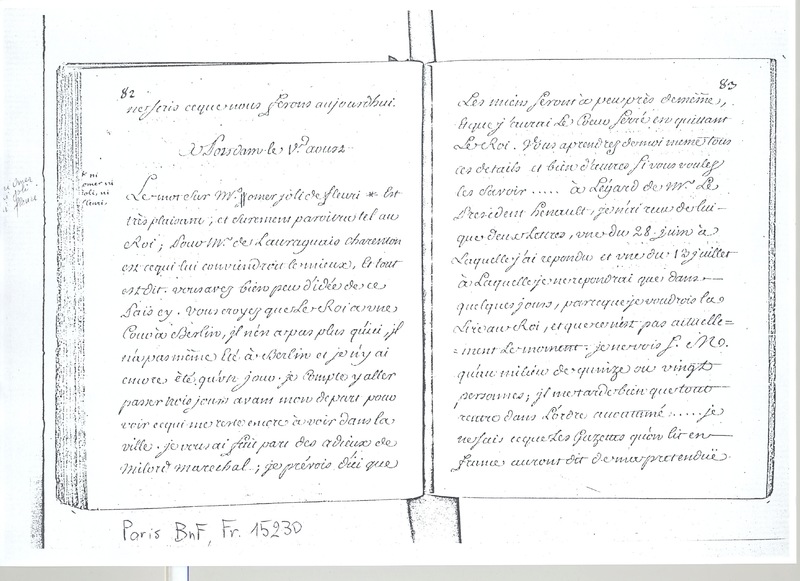 82
ne sçais ceque nous ferons aujourdhui.
A Potsdam le Vd. aoust
Le mot sur Mr. pomer joli de fleuri * Est
très plaisant; et surement paroitra tel au
Roi; Pour Mr. de Lauraguais charenton
est cequi lui conviendroit le mieux, Et tout
est dit. vous avez bien peu d'idée de ce
Païs cy. vous croyez que Le Roi a une
Cour à Berlin, jl n'en a pas plus qu'ici, jl
n'a pas même Eté à Berlin et je n'y ai
encore été qu'un jour. je Compte y aller
passer trois jours avant mon depart pour
voir cequi me reste encore à voir dans la
ville. je vous ai fait part des adieux de
Milord maréchal; je prévois d'ici que
* ni
omer ni
joli, ni
fleuri.
83
Les miens seront à peu près de même,
Et que j'aurai Le Coeur serré en quittant
Le Roi. Vous aprendrez de moi même tous
ces details et bien d'autres si vous voulez
les savoir ..... à L'égard de Mr. Le
President henault, je n'ai reçu de lui
que deux Lettres, une du 28. juin à
Laquelle j'ai repondu et une du 13 juillet
à Laquelle je ne repondrai que dans
quelques jours, parceque je voudrois la
Lire au Roi, et que ce n'est pas actuelle=
=ment Le moment. je ne vois S. M.
qu'au milieu de quinze ou vingt
personnes; jl me tarde bien que tout
rentre dans L'ordre accoutumé ..... je
ne sais ceque Les Gazettes qu'on lit en
france auront dit de ma pretenduë
Paris BnF, Fr. 15230